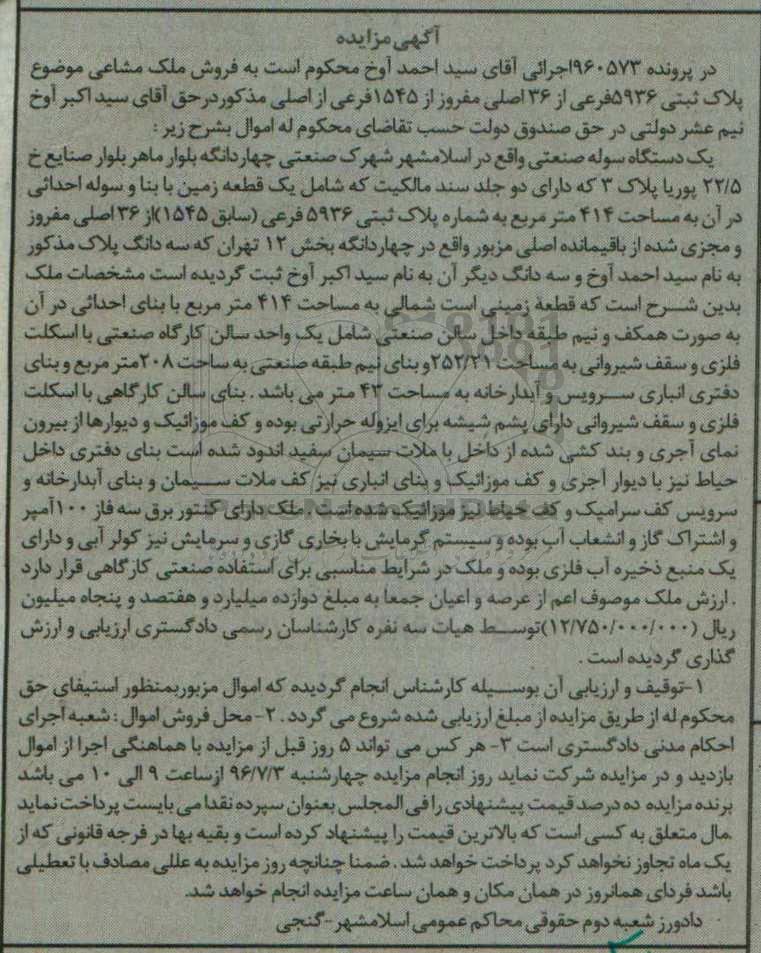 آگهی مزایده
در پرونده ۹۶۰۵۷۳اجرائی آقای سید احمد آوخ محکوم است به فروش ملک مشاعی موضوع
پلاک ثبتی ۵۹۳۶فرعی از ۳۶ اصلی مفروز از ۱۵۴۵فرعی از اصلی مذکوردرحق آقای سید اکبر آوخ
نیم عشر دولتی در حق صندوق دولت حسب تقاضای محکوم له اموال بشرح زیر :
یک دستگاه سوله صنعتی واقع در اسلامشهر شهرک صنعتی چهاردانگه بلوار ماهر بلوار صنایع خ
۲۲/۵ پوریا پلاک ۳ که دارای دو جلد سند مالکیت که شامل یک قطعه زمین با بنا و سوله احداثی
در آن به مساحت ۴۱۴ متر مربع به شماره پلاک ثبتی ۵۹۳۶ فرعی (سابق ۱۵۴۵)از ۳۶ اصلی مفروز
و مجزی شده از باقیمانده اصلی مزبور واقع در چهاردانگه بخش ۱۲ تهران که سه دانگ پلاک مذکور
به نام سید احمد آوخ و سه دانگ دیگر آن به نام سید اکبر آوخ ثبت گردیده است مشخصات ملک
بدین شرح است که قطعه زمینی است شمالی به مساحت ۴۱۴ متر مربع با بنای احداثی در آن
به صورت همکف و نیم طبقه داخل سالن صنعتی شامل یک واحد سالن کارگاه صنعتی با اسکلت
فلزی و سقف شیروانی به مساحت ۲۵۲/۲۱و بنای نیم طبقه صنعتی به ساحت ۲۰۸متر مربع و بنای
دفتری انباری سرویس و آبدارخانه به مساحت ۴۳ متر می باشد . بنای سالن کارگاهی با اسکلت
فلزی و سقف شیروانی دارای پشم شیشه برای ایزوله حرارتی بوده و کف موزائیک و دیوارها از بیرون
نمای آجری و بند کشی شده از داخل با ملات سیمان سفید اندود شده است بنای دفتری داخل
حیاط نیز با دیوار آجری و کف موزائیک و بنای انباری نیز کف ملات سیمان و بنای آبدارخانه و
سرویس کف سرامیک و کف حیاط نیز موزائیک شده است . ملک دارای کنتور برق سه فاز ۱۰۰آمپر
و اشتراک گاز و انشعاب آب بوده و سیستم گرمایش با بخاری گازی و سرمایش نیز کولر آبی و دارای
یک منبع ذخیره آب فلزی بوده و ملک در شرایط مناسبی برای استفاده صنعتی کارگاهی قرار دارد
. ارزش ملک موصوف اعم از عرصه و اعیان جمعا به مبلغ دوازده میلیارد و هفتصد و پنجاه میلیون
ریال (۱۲/۷۵۰/۰۰۰/۰۰۰)توسط هیات سه نفره کارشناسان رسمی دادگستری ارزیابی و ارزش
گذاری گردیده است .
۱-توقیف و ارزیابی آن بوسیله کارشناس انجام گردیده که اموال مزبوربمنظور استیفای حق
محکوم له از طریق مزایده از مبلغ ارزیابی شده شروع می گردد . ۲- محل فروش اموال : شعبه آجرای
احکام مدنی دادگستری است ۳- هر کس می تواند ۵ روز قبل از مزایده با هماهنگی اجرا از اموال
بازدید و در مزایده شرکت نماید روز انجام مزایده چهارشنبه ۹۶/۷/۳ ازساعت ۹ الی ۱۰ می باشد
برنده مزایده ده درصد قیمت پیشنهادی را فی المجلس بعنوان سپرده نقدا می بایست پرداخت نماید
.مال متعلق به کسی است که بالاترین قیمت را پیشنهاد کرده است و بقیه بها در فرجه قانونی که از
یک ماه تجاوز نخواهد کرد پرداخت خواهد شد . ضمنا چنانچه روز مزایده به عللی مصادف با تعطیلی
باشد فردای همانروز در همان مکان و همان ساعت مزایده انجام خواهد شد.
دادورز شعبه دوم حقوقی محاکم عمومی اسلامشهر -گنجی